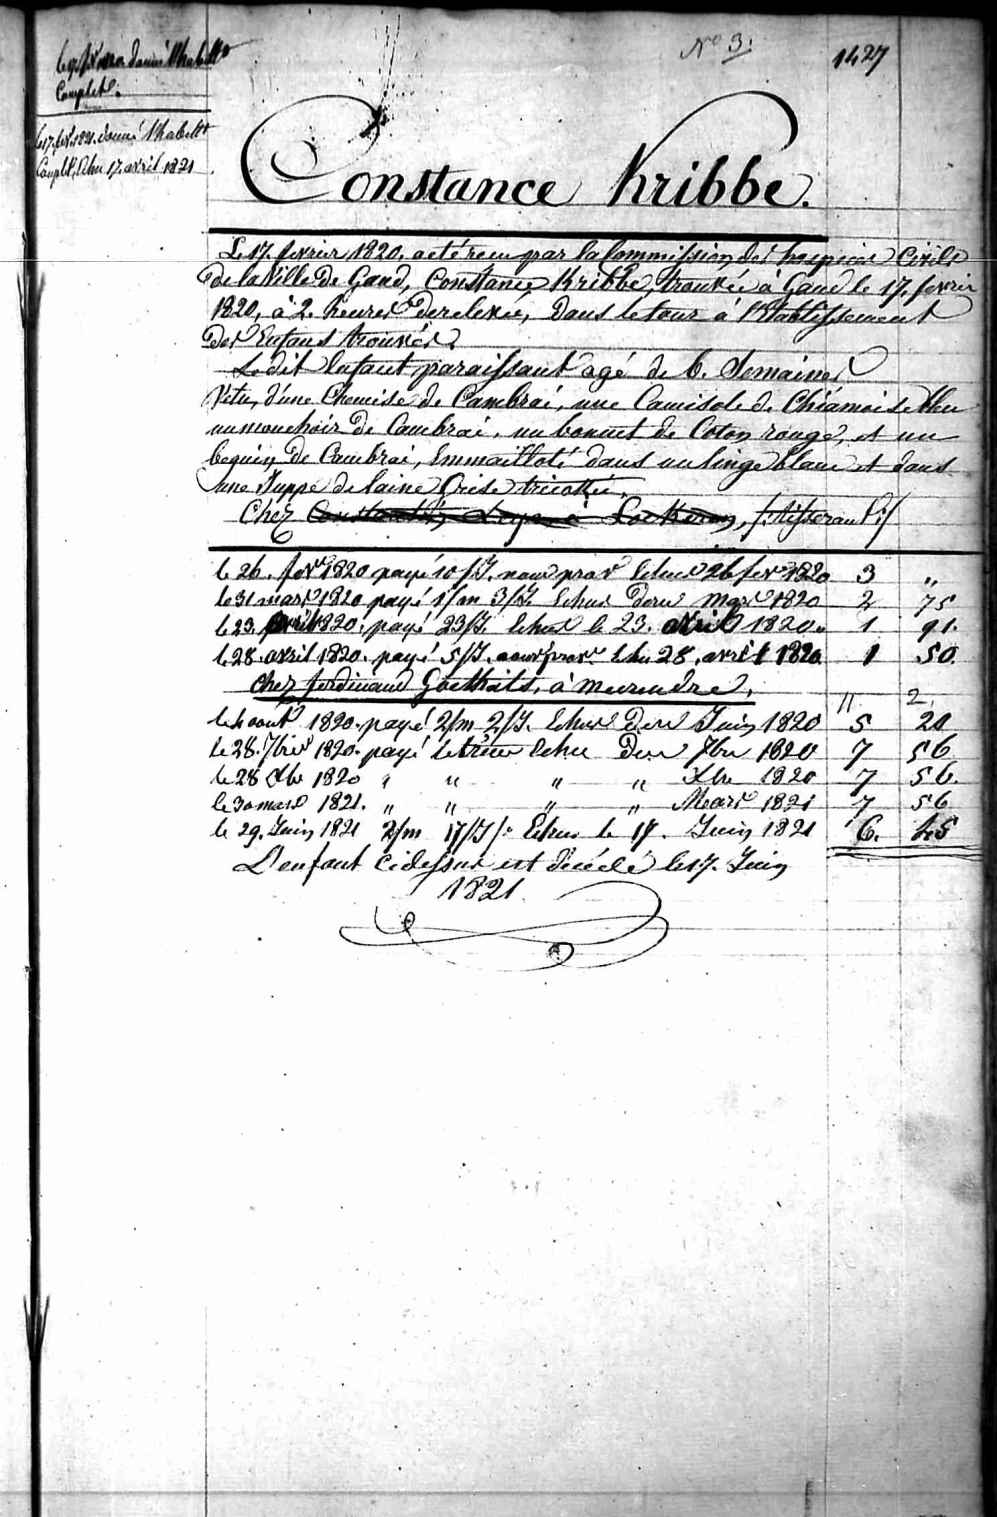 N° 3.
1427
donné l'habillt
Complet.
le 17. fevr 1821. donné l'habillt
Complt, Echu 17. avril 1821
Constance Kribbe.
Le 17. fevrier 1820, a eté recu par la Commission des hospices Civils
de la Ville de Gand, Constance Kribbe, trouvée à Gand le 17. fevrier
1820, à 2. heures de relevée, dans le tour à l'Etablissement
des Enfans trouvés.
Ledit Enfant paraissant agé de 6. Semaines
Vetu, d'une Chemise de Cambrai, une Camisole de Chiamoise bleu
un mouchoir de Cambrai, un bonnet de Coton rouge, et un
beguin de Cambrai, Emmailloté dans un linge blanc et dans
une Juppe de laine Grise tricottée.
Chez Lokeren, /:tisserant:/
le 26. fevr 1820 payé 10/J. Echus 26 fevr 1820 3 "
le 31 mars 1820 payé 1/m 3/J. Echus dern mars 1820 2 75
le 23. avril 1820. payé 23/J. Echus le 23. avril 1820. 1 91.
le 28. avril 1820. payé 5/J. Echu 28. avril 1820. 1 50.
Chez ferdinand Goethals, à meirendre. 11 2.
le août 1820. payé 2/m 2/J. Echus dern Juin 1820 5 20
le 28. 7bre 1820. payé le trim Echu dern 7bre 1820 7 56
le 28 Xbr 1820 " " " " Xbre 1820 7 56.
le 30 mars 1821. " " " " Mars 1821 7 56
le 29. Juin 1821 2/m 17/J. Echus le 17. Juin 1821 6. 45
L'enfant cidessus est décédé le 17. Juin
1821.